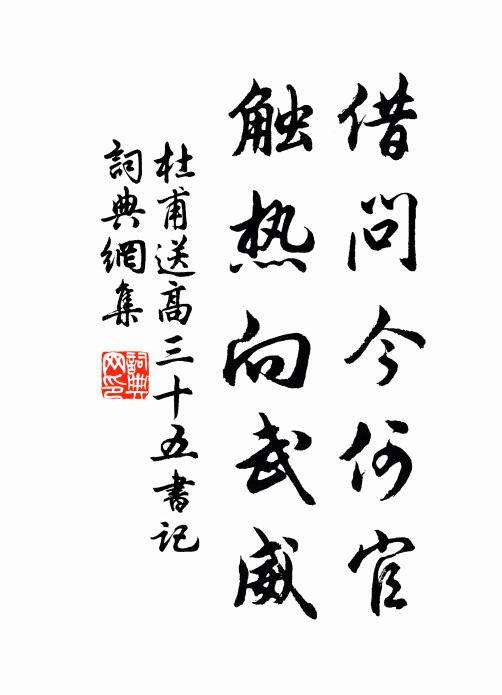 借问今何官
触热向武威
杜甫送高三十五書记
詞典網集
詞典
网印